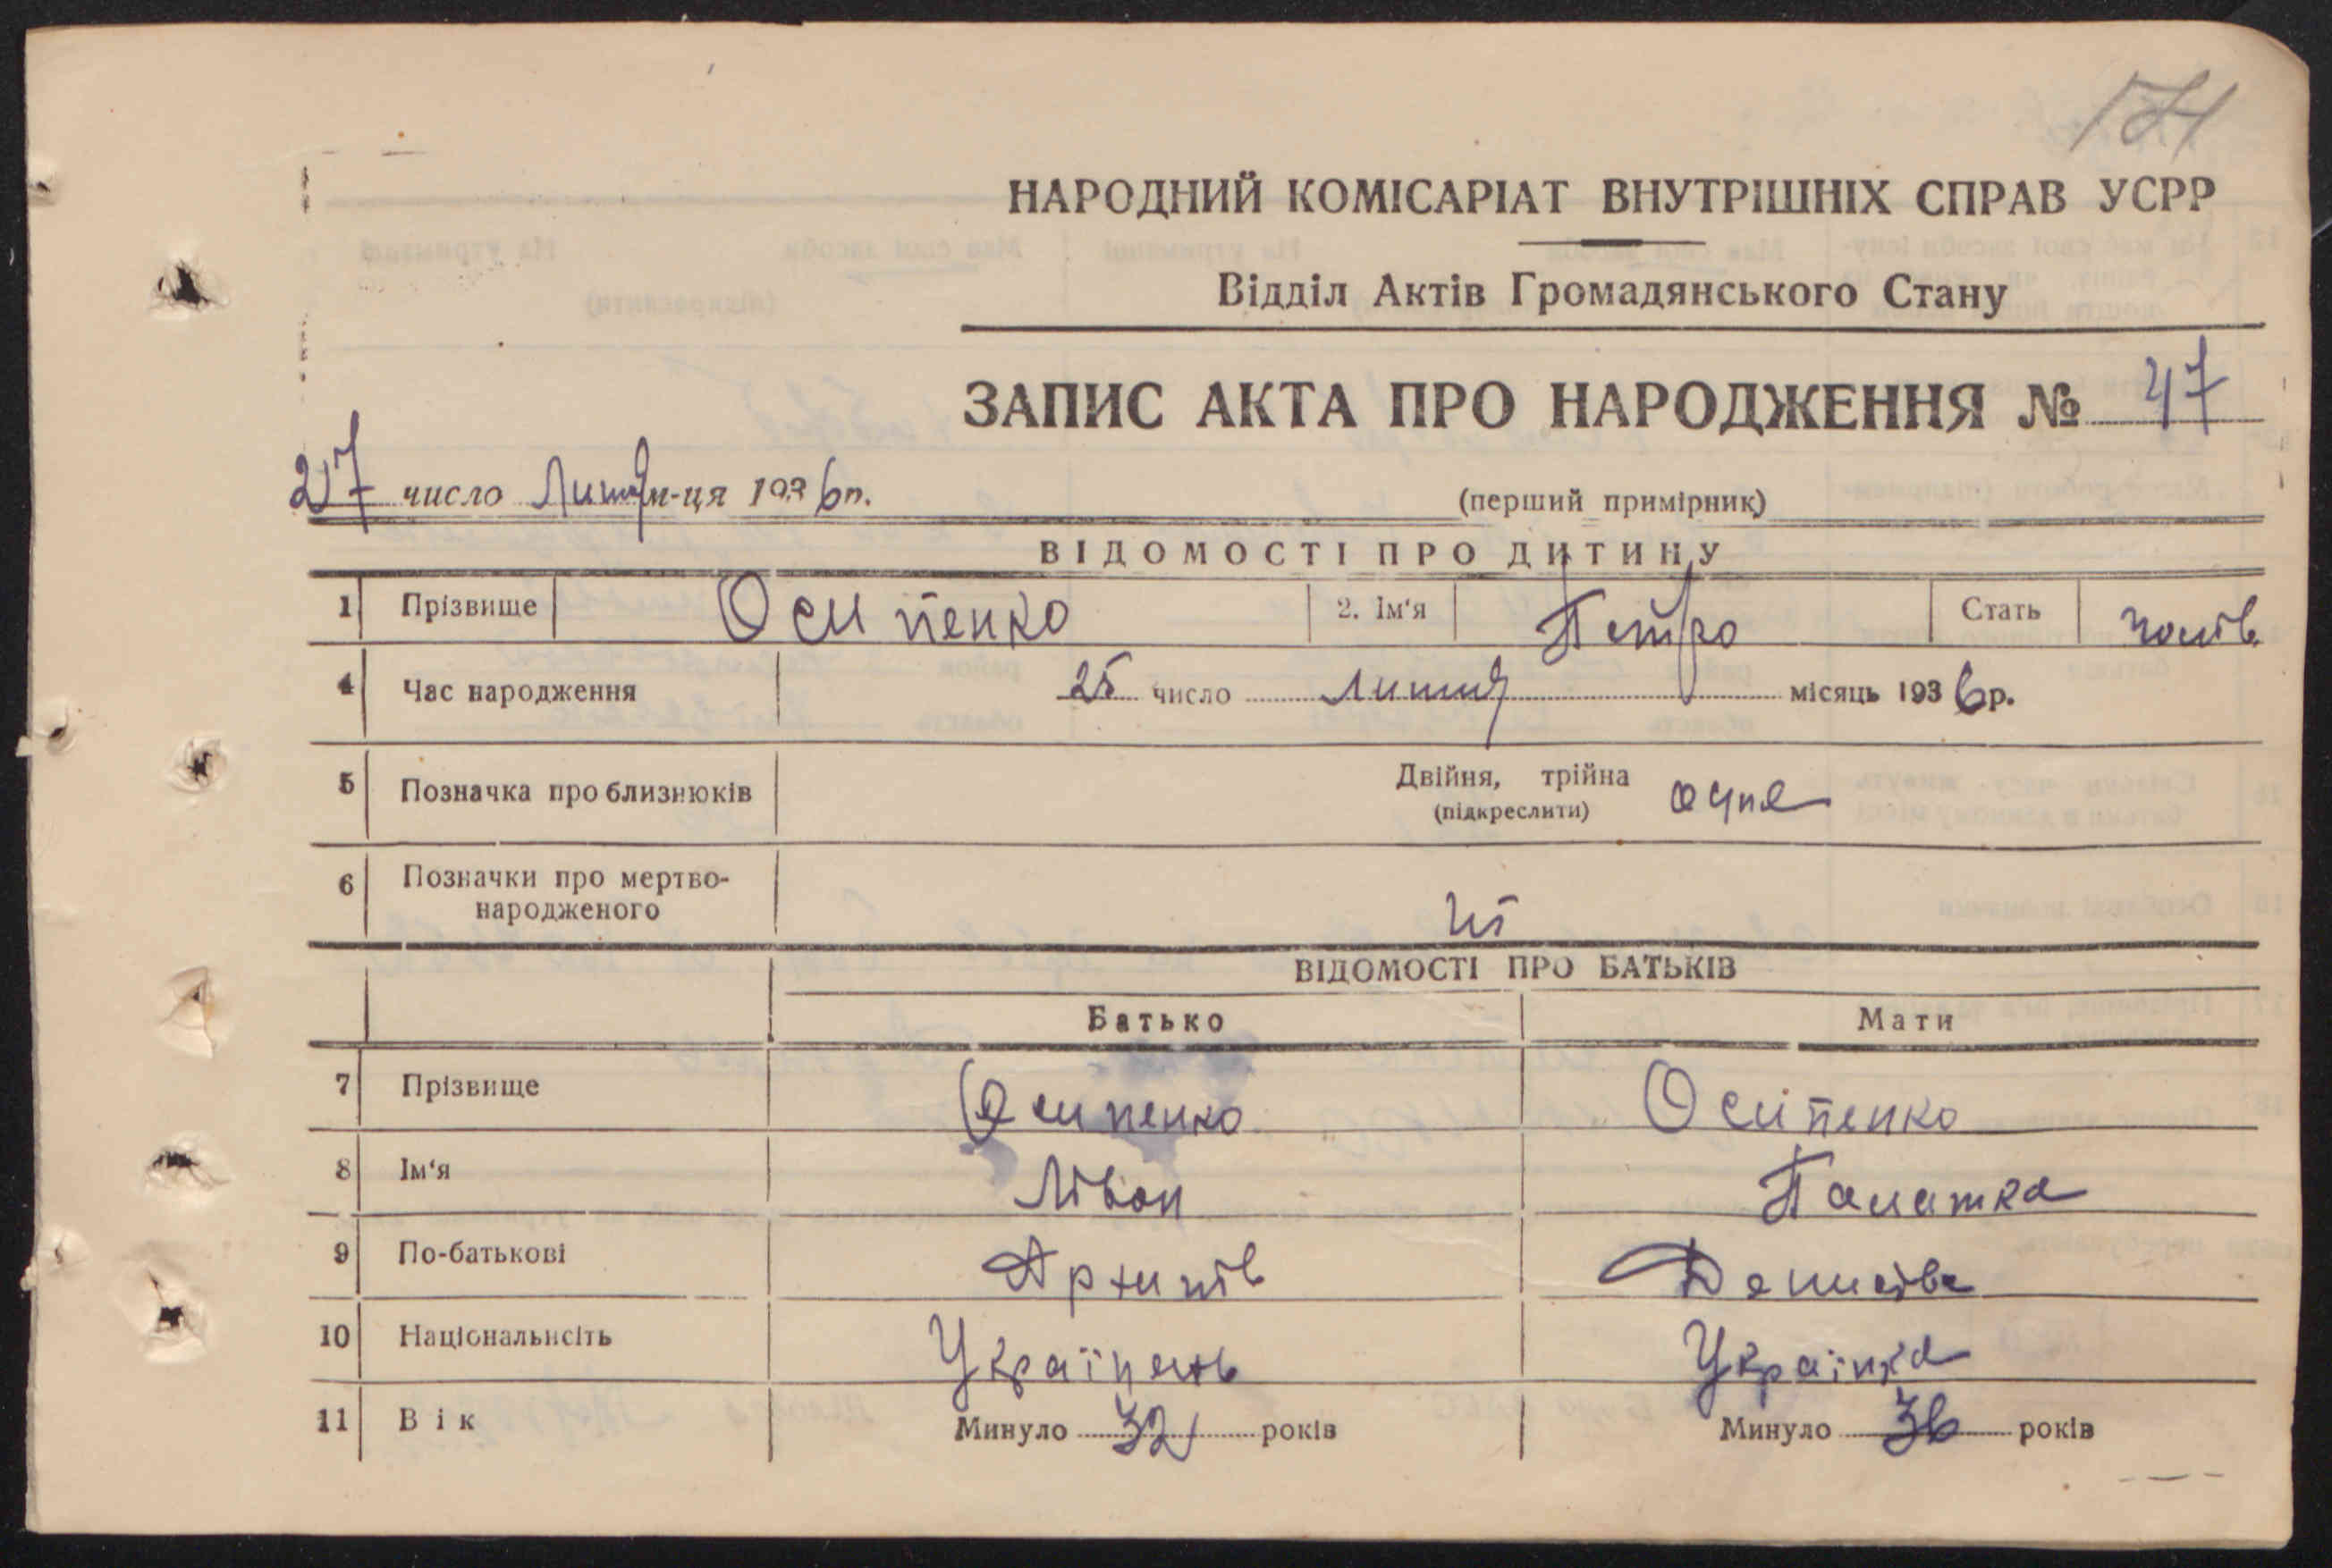 174
НАРОДНИЙ КОМІСАРІАТ ВНУТРІШНІХ СПРАВ УСРР
Відділ Актів Громадянського Стану
ЗАПИС АКТА ПРО НАРОДЖЕННЯ № 47
27 число Лютня м-ця 1936 р.
(перший примірник)
ВІДОМОСТІ ПРО ДИТИНУ
1 Прізвище Осипенко 2. Ім'я Петро Стать
4 Час народження 25 число місяць 1936 р.
5 Позначка про близнюків Двійня, трійна
(підкреслити)
6 Позначки про мертво-
народженого ні
ВІДОМОСТІ ПРО БАТЬКІВ
Батько Мати
7 Прізвище Осипенко Осипенко
8 Ім'я Лівон
9 По-батькові Архипів Денисівa
10 Національність Українець Українка
11 Вік Минуло 32 років Минуло 36 років